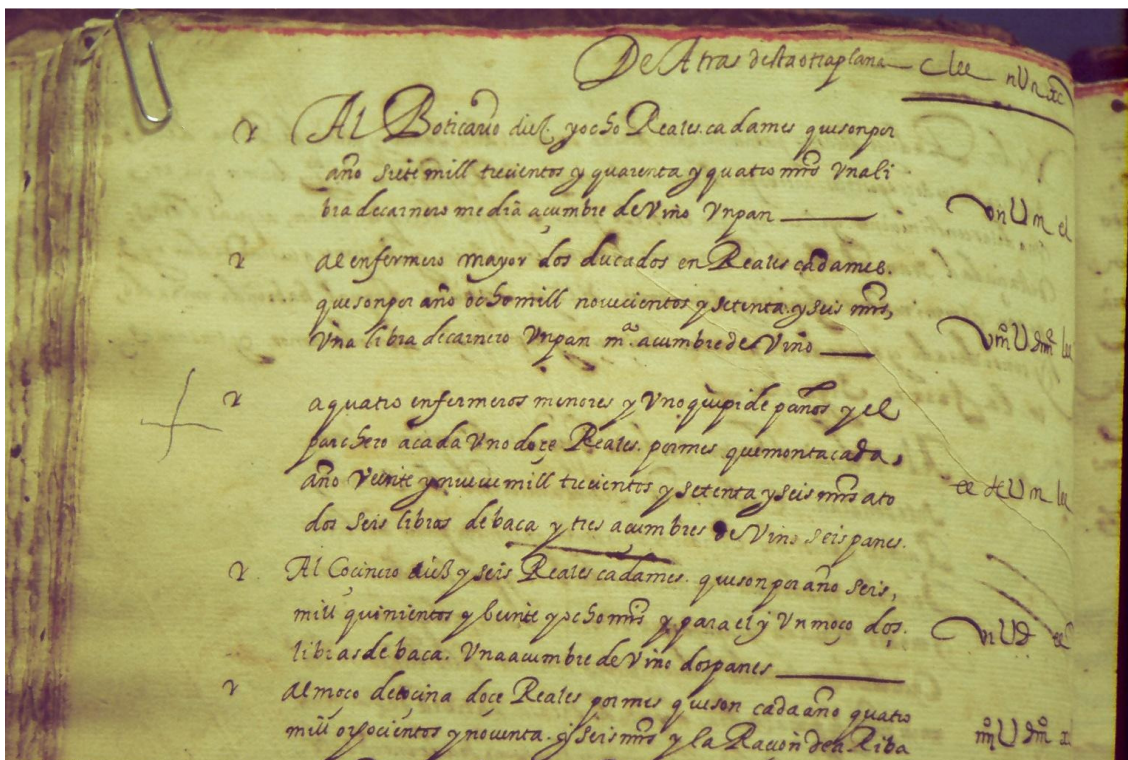 De Atras desta otra plana
Al Boticario diez yocho Reales. cadames quesonpor
año siete mill trecientos y quarenta y quatro mrs Vnali
bra decarnero media acumbre de Viño Vnpan
al enfermero mayor dos ducados en Reales cadames.
quesonpor año ochomill novecientos y setenta. y seis mrs,
Vna libra decarnero Vnpan mª. acumbre de Viño
a quatro enfermeros menores y Vno de paños y el
parchero acada Vno doçe Reales. pormes quemontacada,
año Veinte ynueve mill trecientos y setenta yseis mrs ato
dos seis libras de baca y tres acumbres de Vino seis panes.
Al Cocinero diez y seis Reales cadames. quesonporaño seis,
mill quinientos y beinte yocho mrs y para el y Vnmoço dos.
libras de baca. Vna acumbre de Viño dospanes
almoço decocina doce Reales pormes queson cadaaño quatro
mill ochocientos ynoventa. y seis mrs y la Racion de a Riba